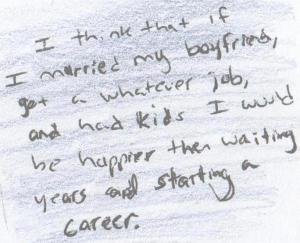 I think that if
I married my boyfriend,
get a whatever job,
and had kids I would
be happier then waiting
years and starting a
career.